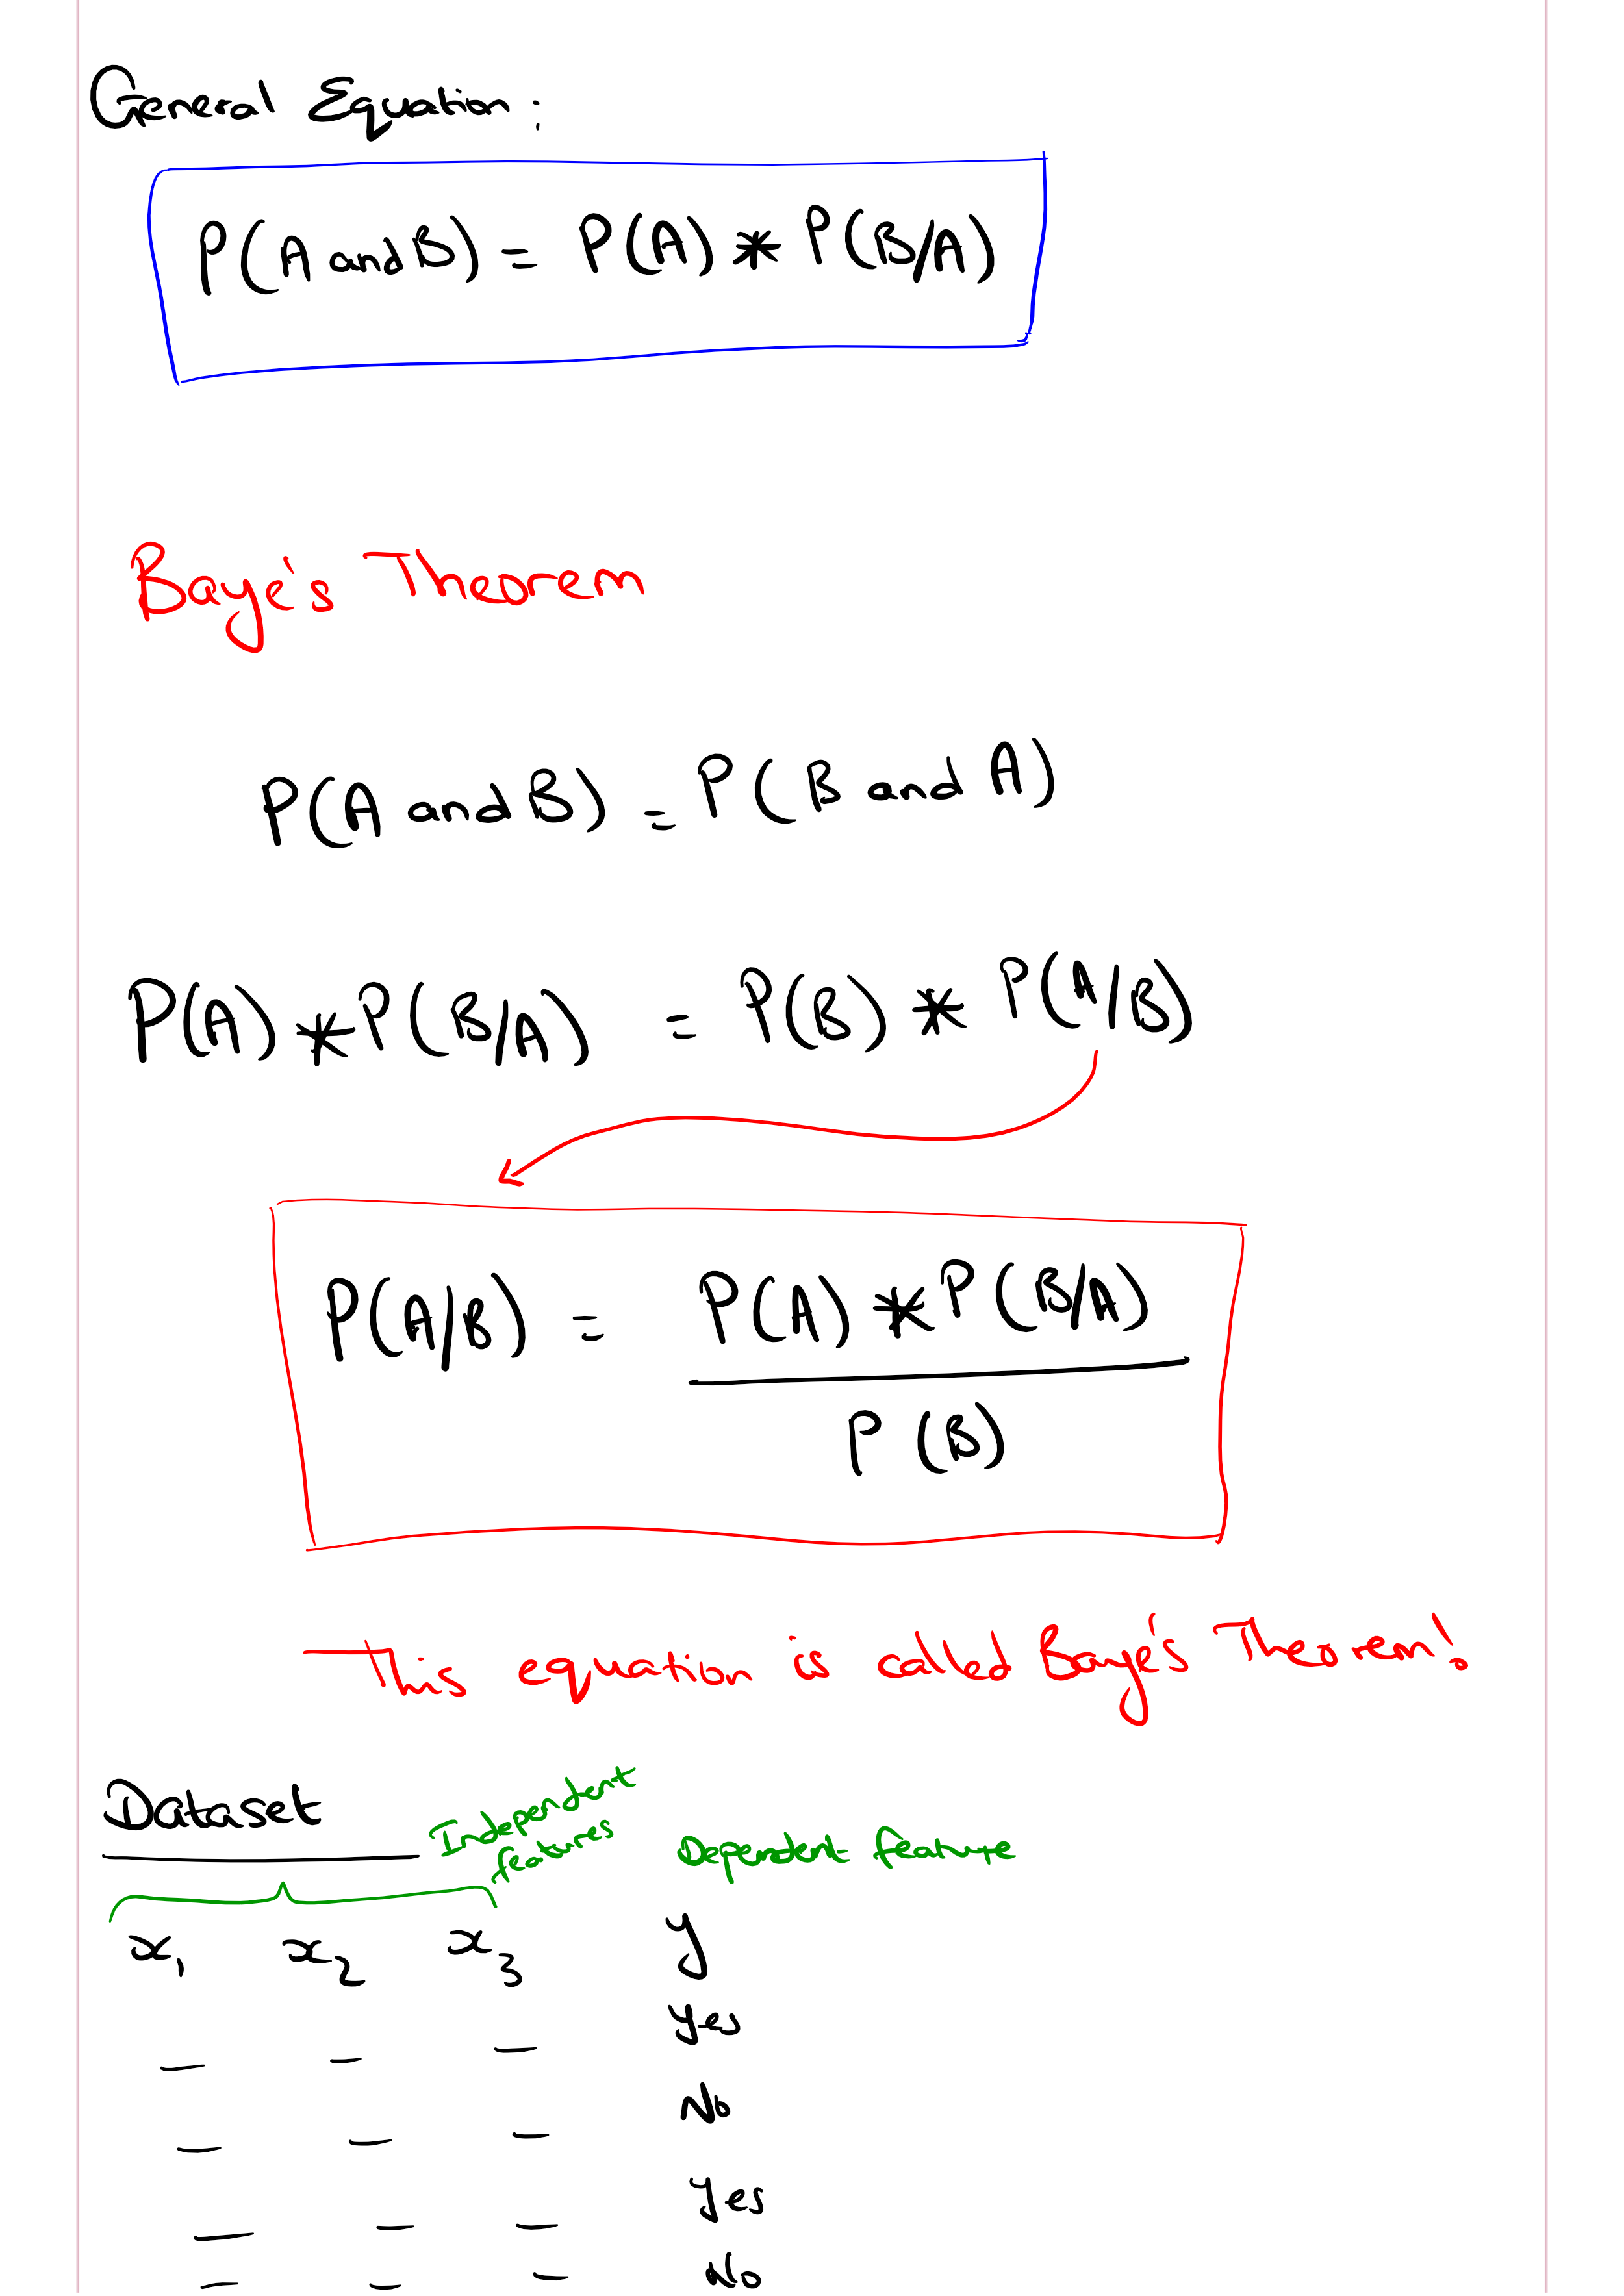 General Equation:
P(A and B) = P(A) * P(B/A)
Baye's Theorem
P(A and B) = P(B and A)
P(A) * P(B/A) = P(B) * P(A/B)
P(A/B) = P(A) * P(B/A)
P(B)
This equation is called Baye's Theorem!
Dataset
Independent
features
Dependent feature
x₁ x₂ x₃ y
— — — Yes
— — — No
— — — Yes
— — — No